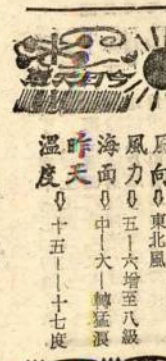 風向⇩東北風
風力⇩五——六增至八級
海面⇩中——大——轉猛浪
昨天
溫度⇩十五——十七度